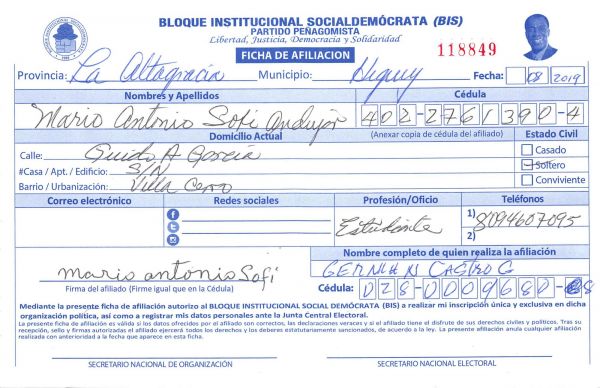 BLOQUE INSTITUCIONAL SOCIALDEMÓCRATA (BIS)
PARTIDO PEÑAGOMISTA
Libertad, Justicia, Democracia y Solidaridad
FICHA DE AFILIACION
118849
Provincia: La Altagracia Municipio: Higuey Fecha: 08 2019
Nombres y Apellidos Cédula
Mario Antonio Sofi Andujar 402-2761390-4
Domicilio Actual (Anexar copia de cédula del afiliado) Estado Civil
Calle: Guido A Garcia
Casado
#Casa / Apt. / Edificio: S/N
Soltero
Barrio / Urbanización: Villa Cerro
Conviviente
Correo electrónico Redes sociales Profesión/Oficio Teléfonos
Estudiante 1) 8094607095
2)
Nombre completo de quien realiza la afiliación
mario antonio Sofi CASTRO G
Firma del afiliado (Firme igual que en la Cédula) Cédula: 028-0009680-8
Mediante la presente ficha de afiliación autorizo al BLOQUE INSTITUCIONAL SOCIAL DEMÓCRATA (BIS) a realizar mi inscripción única y exclusiva en dicha
organización política, así como a registrar mis datos personales ante la Junta Central Electoral.
La presente ficha de afiliación es válida si los datos ofrecidos por el afiliado son correctos, las declaraciones veraces y si el afiliado tiene el disfrute de sus derechos civiles y políticos. Tras su
recepción, sello y firmas autorizadas el afiliado ejercerá todos los derechos y los deberes estatutariamente sancionados, de acuerdo a la ley. La presente afiliación anula cualquier afiliación
realizada con anterioridad a la fecha que aparece en esta ficha.
SECRETARIO NACIONAL DE ORGANIZACIÓN SECRETARIO NACIONAL ELECTORAL